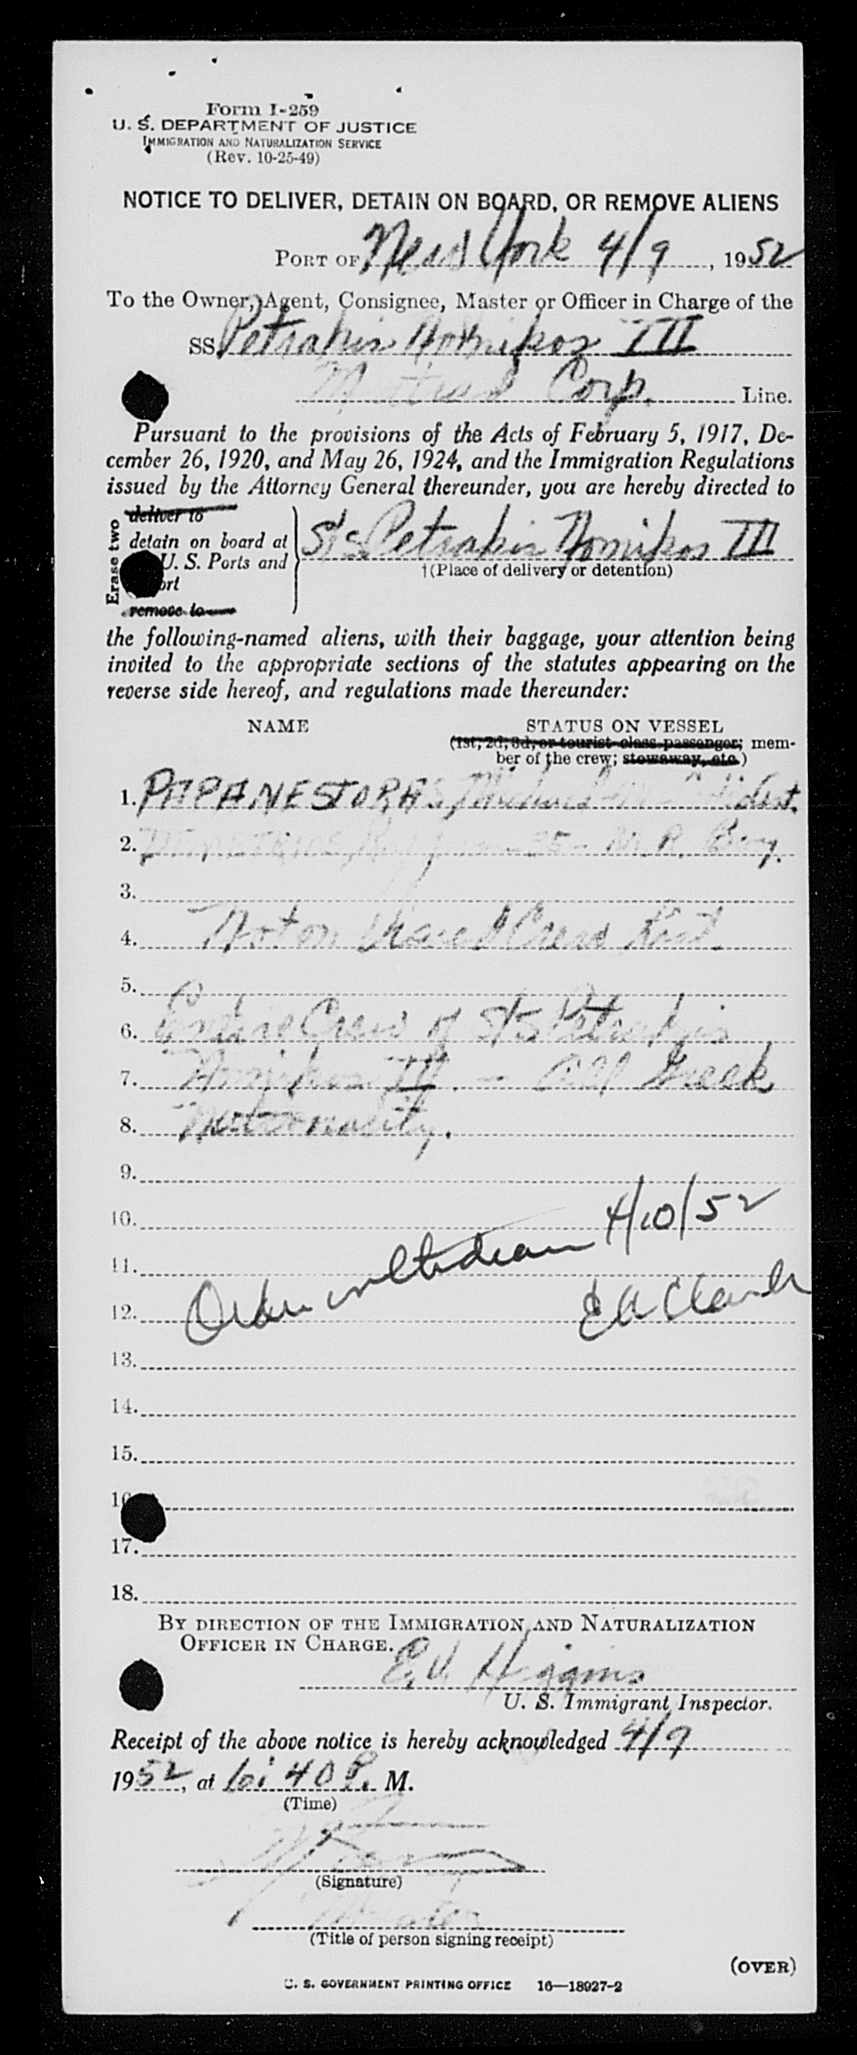 Form I-259
U. S. DEPARTMENT OF JUSTICE
IMMIGRATION AND NATURALIZATION SERVICE
(Rev. 10-25-49)
NOTICE TO DELIVER, DETAIN ON BOARD, OR REMOVE ALIENS
PORT OF New York 4/9, 1952
To the Owner, Agent, Consignee, Master or Officer in Charge of the
SS Petrakis Nomikos III
Corp. Line.
Pursuant to the provisions of the Acts of February 5, 1917, De-
cember 26, 1920, and May 26, 1924, and the Immigration Regulations
issued by the Attorney General thereunder, you are hereby directed to
Erase two
deliver to
detain on board at
U. S. Ports and
remove to
S/S Petrakis Nomikos III
†(Place of delivery or detention)
the following-named aliens, with their baggage, your attention being
invited to the appropriate sections of the statutes appearing on the
reverse side hereof, and regulations made thereunder:
NAME STATUS ON VESSEL
(1st, 2d, 3d, or tourist class passenger; mem-
ber of the crew; stowaway, etc.)
1. PAPANESTORAS,
2. DEMETRIOS, 35 M. R. Boy.
3.
4. Not on Crew List.
5.
6. Entire Crew of S/S Petrakis
7. Nomikos III. - all Greek
8. Nationality.
9.
10. 4/10/52
11.
12. Order
13.
14.
15.
16
17.
18.
BY DIRECTION OF THE IMMIGRATION AND NATURALIZATION
OFFICER IN CHARGE.
E. V. Higgins
U. S. Immigrant Inspector.
Receipt of the above notice is hereby acknowledged 4/9
1952, at 10:40 P. M.
(Time)
(Signature)
Master
(Title of person signing receipt)
(OVER)
U. S. GOVERNMENT PRINTING OFFICE 16—18927-2